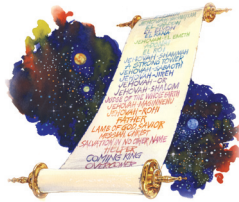 EL ROI
JEHOVAH-SHAMMAH
A STRONG TOWER
JEHOVAH-SABAOTH
JEHOVAH-JIREH
JEHOVAH-OR
JEHOVAH-SHALOM
JUDGE OF THE WHOLE EARTH
JEHOVAH-MAGINNENU
JEHOVAH-ROPHI
FATHER
LAMB OF GOD, SAVIOR
MESSIAH, CHRIST
SALVATION IN NO OTHER NAME
HELPER
COMING KING
OVERCOMER